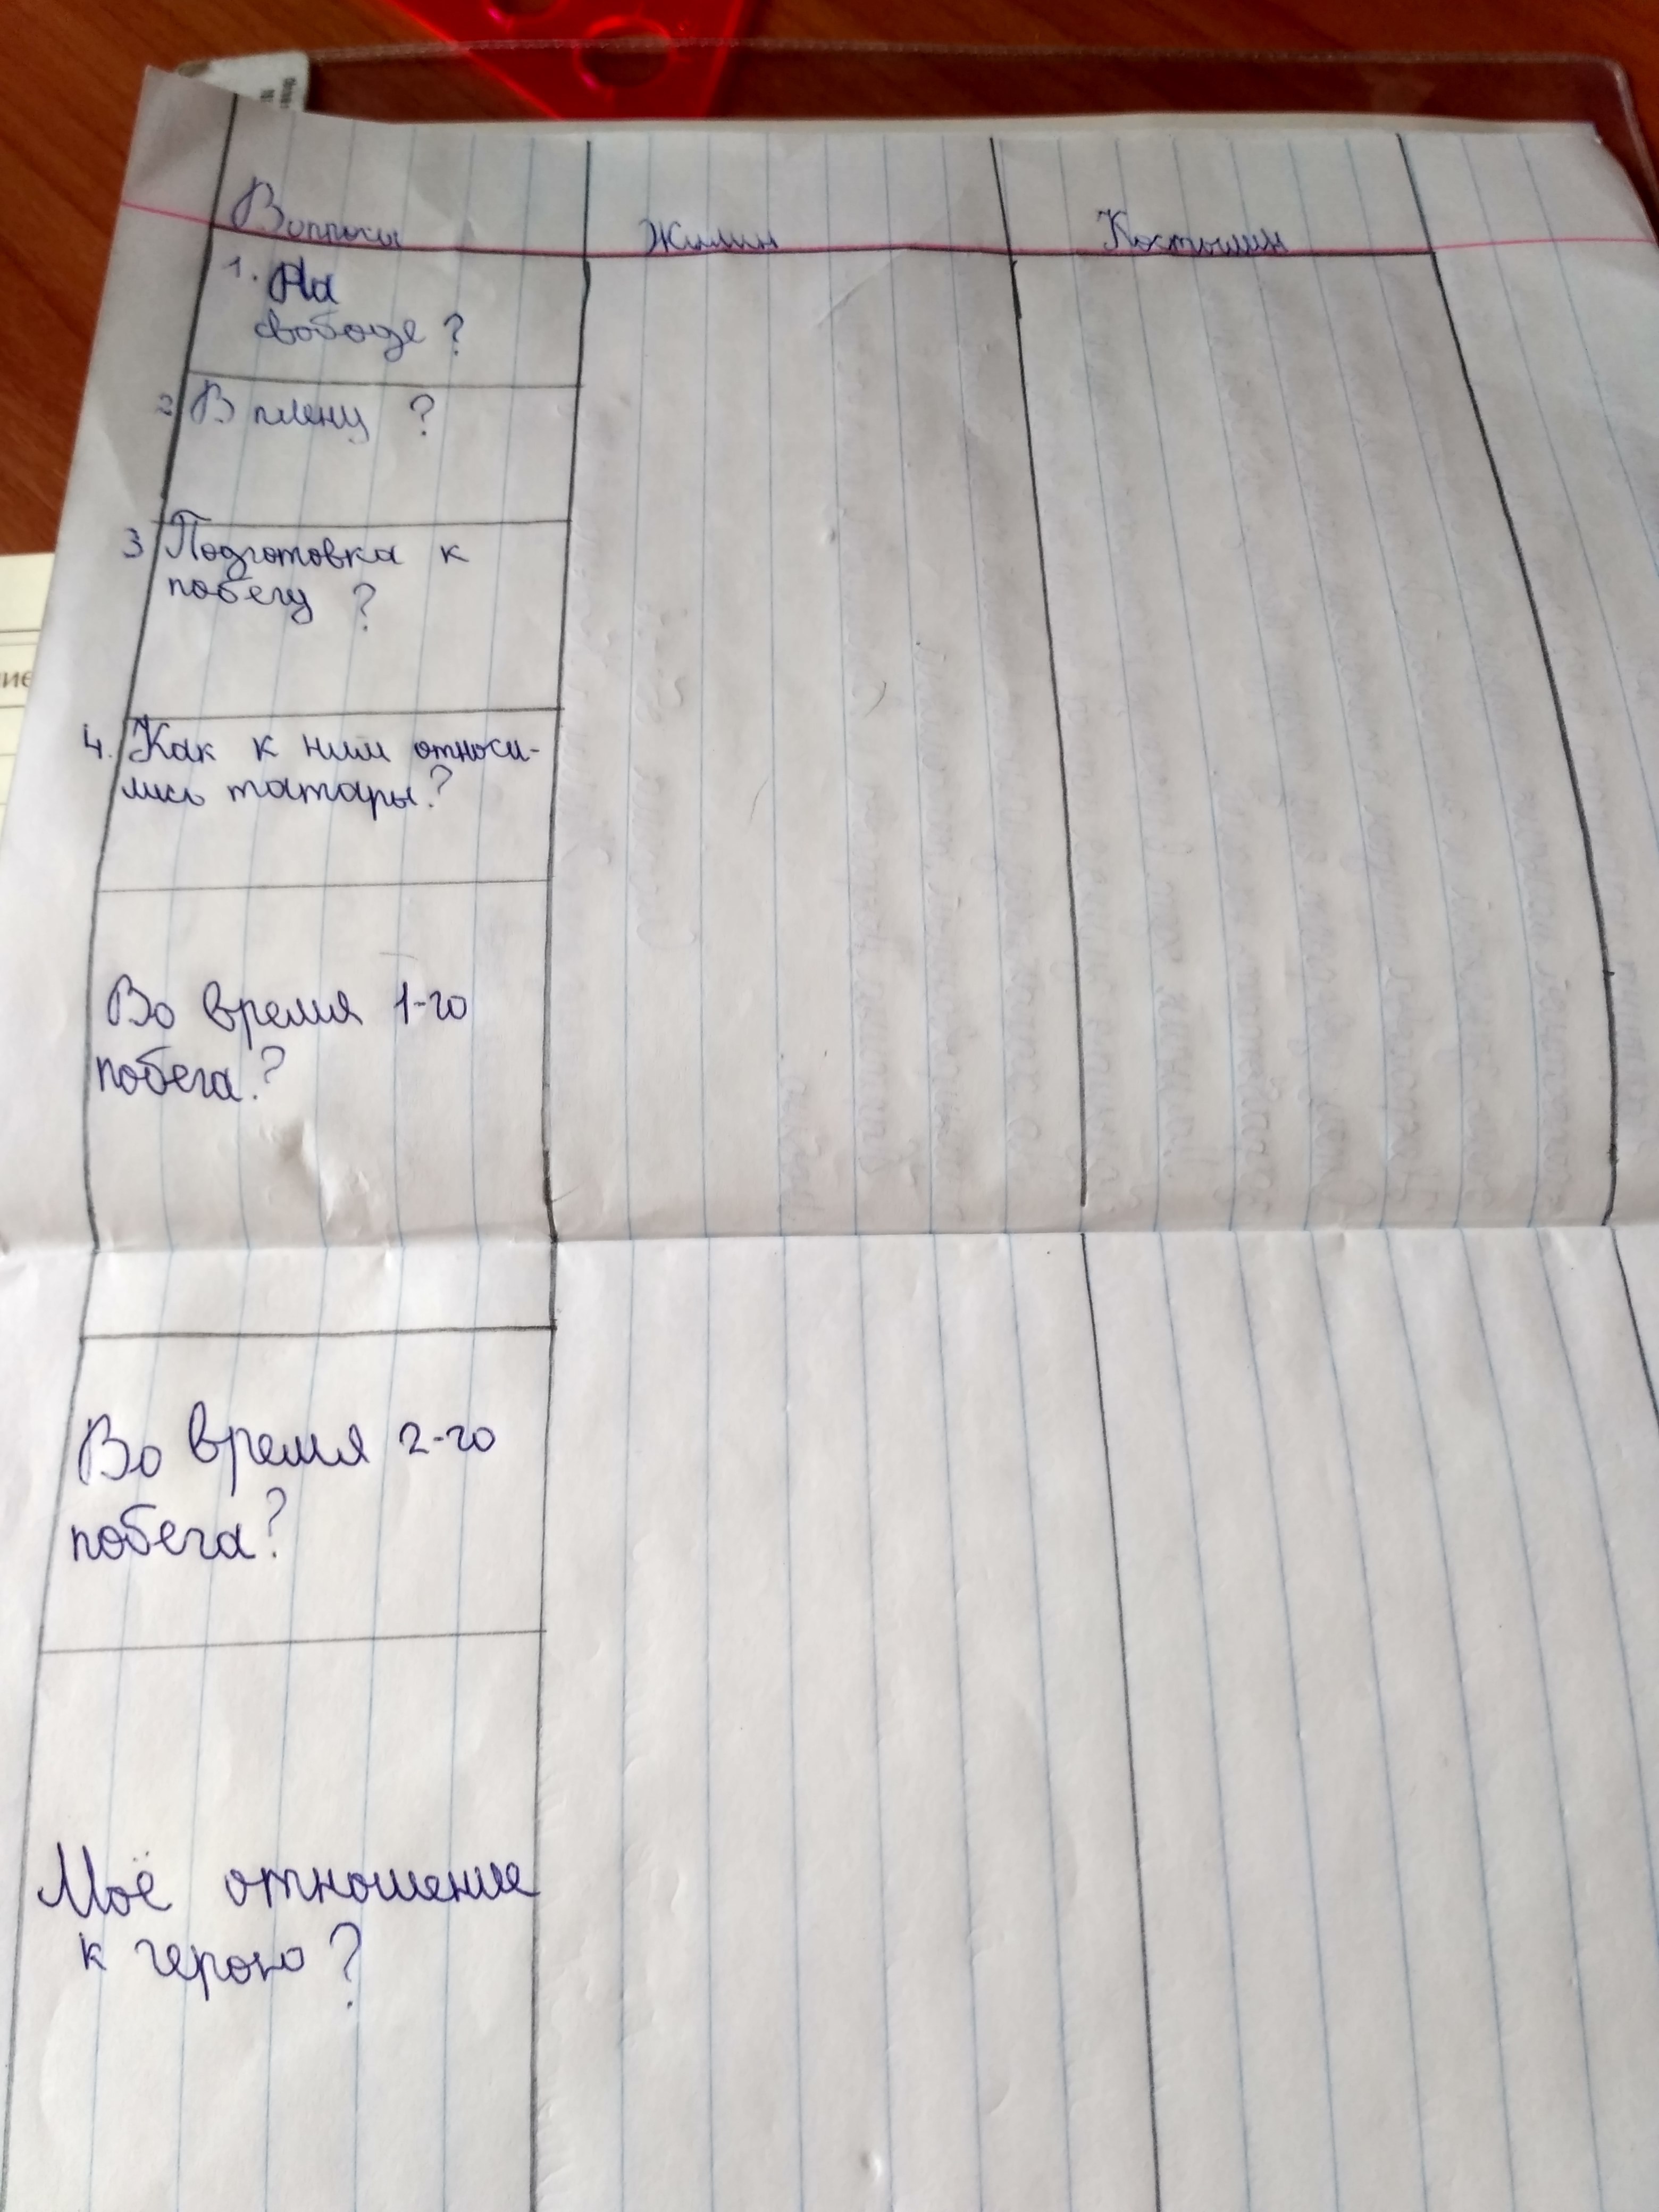 Вопросы Жилин Костылин
1. На
свободе?
2 В плену ?
3 Подготовка к
побегу ?
4. Как к ним относи-
лись татары?
Во время 1-го
побега?
Во время 2-го
побега?
Моё отношение
к герою?